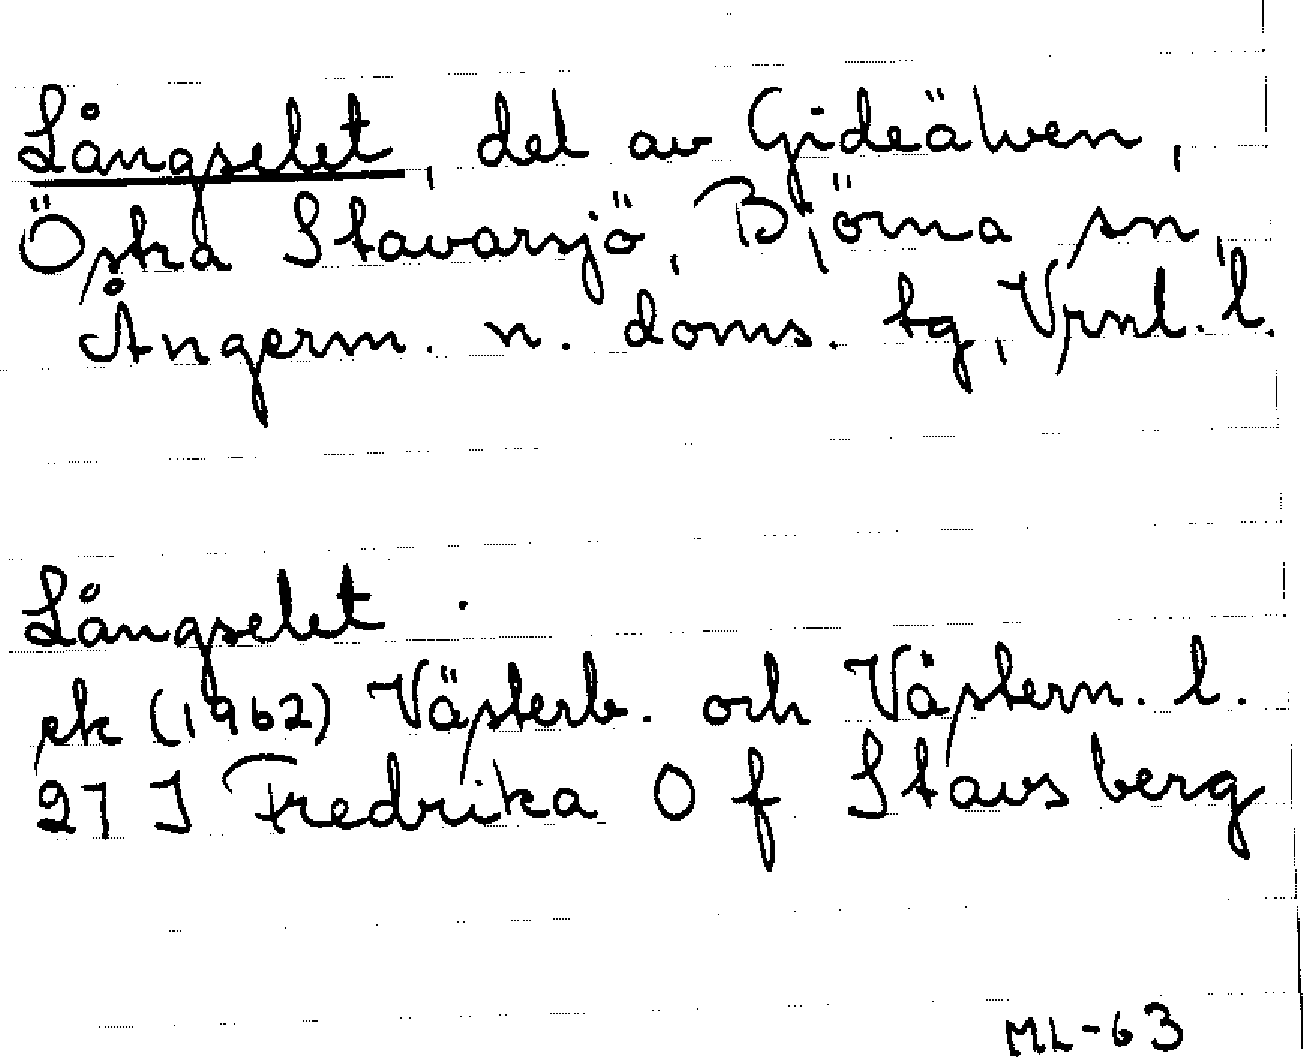 Långselet, del av Gideälven,
Östra Stavarsjö, Björna sn,
Ångerm. n. doms. tg, Vrnl. l.
Långselet
ek (1962) Västerb. och Västern. l.
27 J Fredrika O f Stavsberg
ML-63